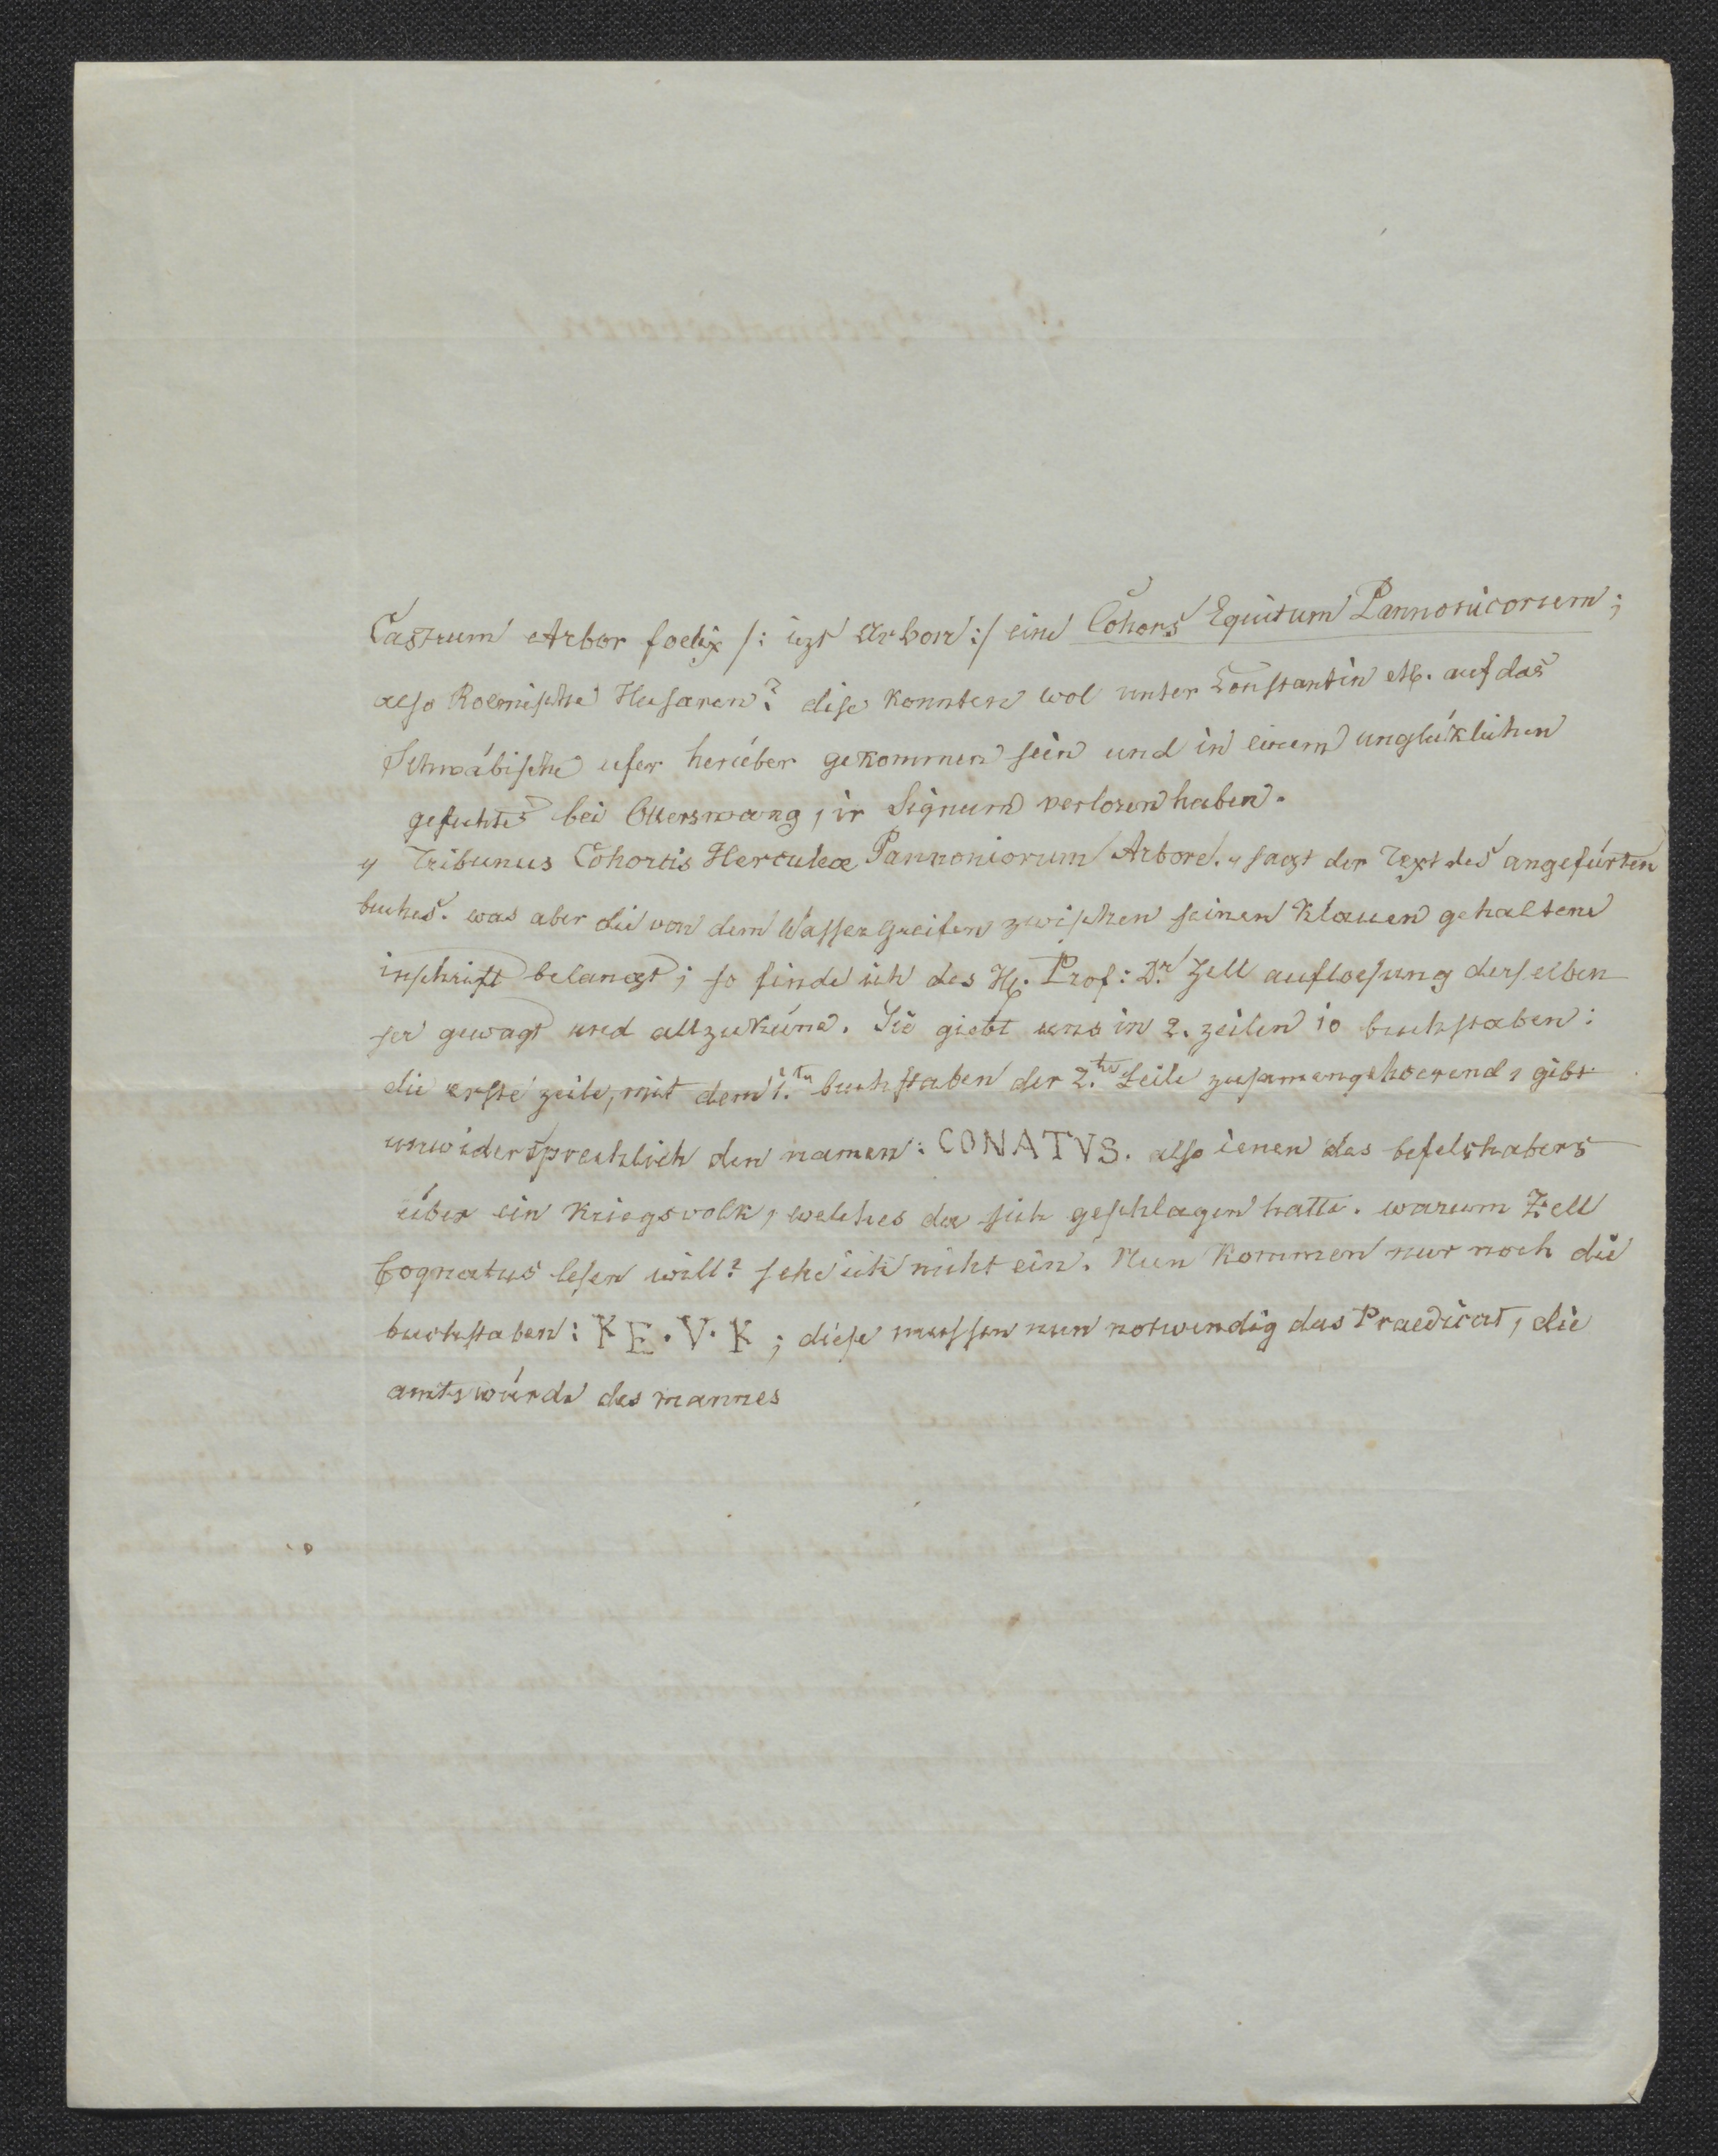 Castrum Arbor foelix /: izt Arbon :/ eine Cohors Equitum Pannonicorum;
also Roemische Husaren? dise konnten wol unter Constantin etc. auf das
Schwäbische ufer herüber gekommen sein und in einem unglüklichen
gefechte bei Okerswang, ir Signum verloren haben.
„ Tribunus Cohortis Herculeæ Pannoniorum Arbore. „ sagt der Text des angefürten
buches. was aber die von dem Wasser Greifen zwischen seinen Klauen gehaltene
inschrift belangt; so finde ich des H. Prof: Dr. Zell aufloesung derselben
ser gewagt und allzuküne. Sie giebt uns in 2. zeilen 10 buchstaben:
die erste zeile, mit dem 1.ten buchstaben der 2.ten Zeile zusamengehoerend, gibt
unwidersprechlich den namen: CONATVS. also ienen des befelshabers
über ein Kriegsvolk, welches da sich geschlagen hatte. warum Zell
Cognatus lesen will? sehe ich nicht ein. Nun kommen nur noch die
buchstaben: K E . V . K ; diese mussen nun notwendig das Praedicat, die
amtswürde des mannes